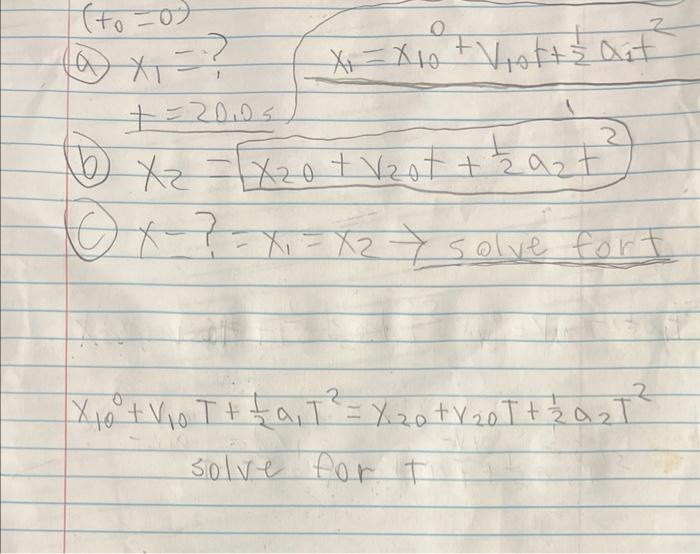 (t₀=0)
ⓐ x₁=? x₁=x₁₀⁰+v₁₀t+½a₁t²
t=20.0s
ⓑ x₂=x₂₀+v₂₀t+½a₂t²
ⓒ x-?=x₁=x₂→solve for t
x₁₀⁰+v₁₀T+½a₁T²=x₂₀+v₂₀T+½a₂T²
solve for t